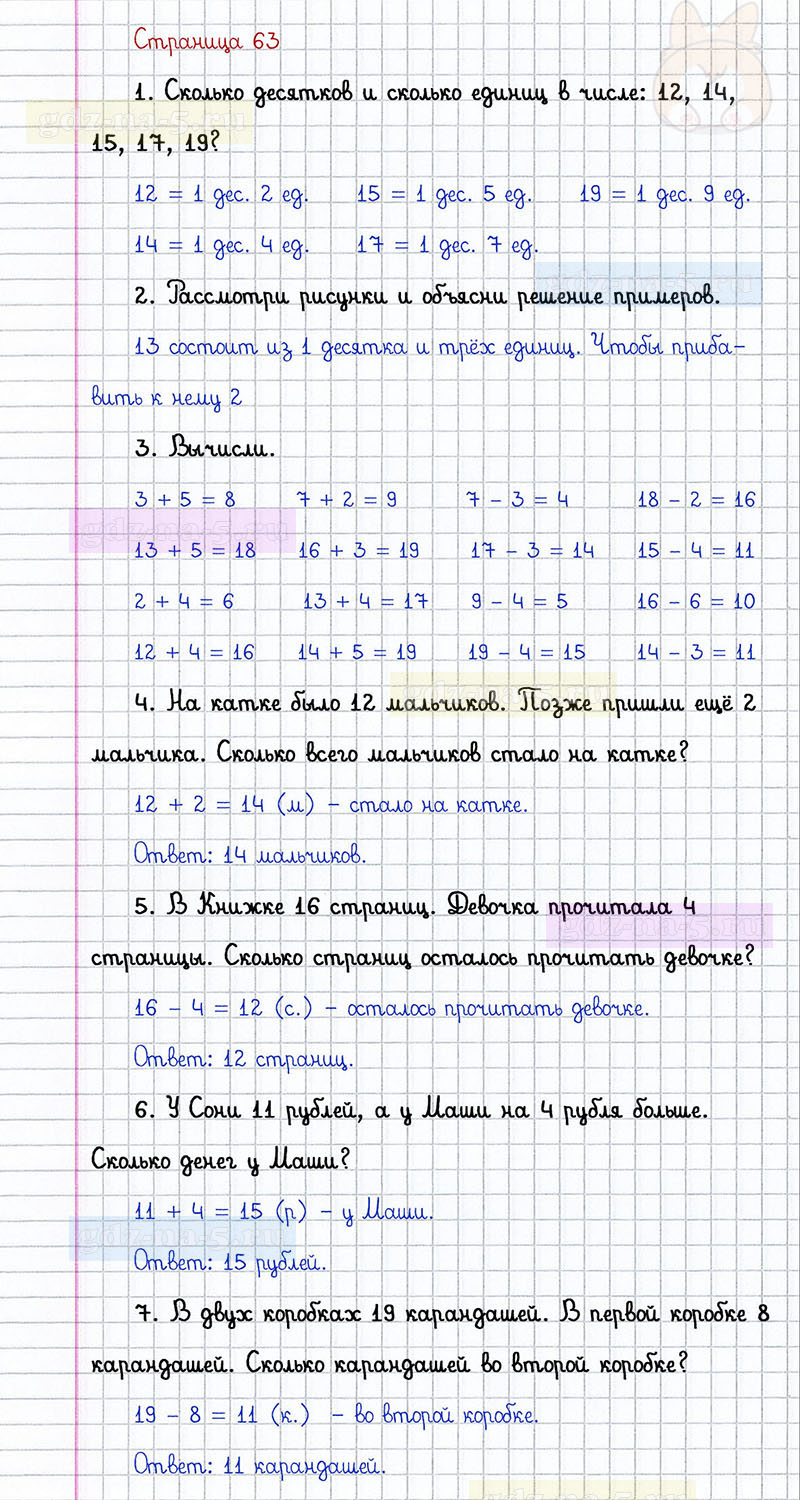 Страница 63
1. Сколько десятков и сколько единиц в числе: 12, 14,
gdz-na-5.ru
15, 17, 19?
12 = 1 дес. 2 ед. 15 = 1 дес. 5 ед. 19 = 1 дес. 9 ед.
14 = 1 дес. 4 ед. 17 = 1 дес. 7 ед.
gdz-na-5.ru
2. Рассмотри рисунки и объясни решение примеров.
13 состоит из 1 десятка и трёх единиц. Чтобы приба-
вить к нему 2
3. Вычисли.
3 + 5 = 8 7 + 2 = 9 7 - 3 = 4 18 - 2 = 16
gdz-na-5.ru
13 + 5 = 18 16 + 3 = 19 17 - 3 = 14 15 - 4 = 11
2 + 4 = 6 13 + 4 = 17 9 - 4 = 5 16 - 6 = 10
12 + 4 = 16 14 + 5 = 19 19 - 4 = 15 14 - 3 = 11
gdz-na-5.ru
4. На катке было 12 мальчиков. Позже пришли ещё 2
мальчика. Сколько всего мальчиков стало на катке?
12 + 2 = 14 (м) - стало на катке.
Ответ: 14 мальчиков.
5. В Книжке 16 страниц. Девочка прочитала 4
gdz-na-5.ru
страницы. Сколько страниц осталось прочитать девочке?
16 - 4 = 12 (с.) - осталось прочитать девочке.
Ответ: 12 страниц.
6. У Сони 11 рублей, а у Маши на 4 рубля больше.
Сколько денег у Маши?
11 + 4 = 15 (р) - у Маши.
gdz-na-5.ru
Ответ: 15 рублей.
7. В двух коробках 19 карандашей. В первой коробке 8
карандашей. Сколько карандашей во второй коробке?
19 - 8 = 11 (к.) - во второй коробке.
Ответ: 11 карандашей.